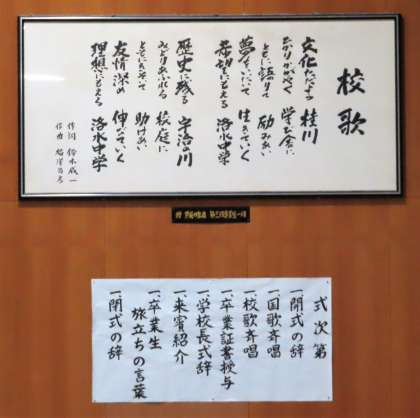 校歌
文化ただよう 桂川
ひかりかがやく 学び舎に
ともに語りて 励みあい
夢をいだいて 生きていく
希望にもえる 洛水中学
歴史に残る 宇治の川
みどりあふれる 校庭に
ともにきそって 助けあい
友情深め 伸びていく
理想にもえる 洛水中学
作詞 鈴木成一
作曲
式次第
一、開式の辞
一、国歌斉唱
一、校歌斉唱
一、卒業証書授与
一、学校長式辞
一、来賓紹介
一、卒業生
旅立ちの言葉
一、閉式の辞